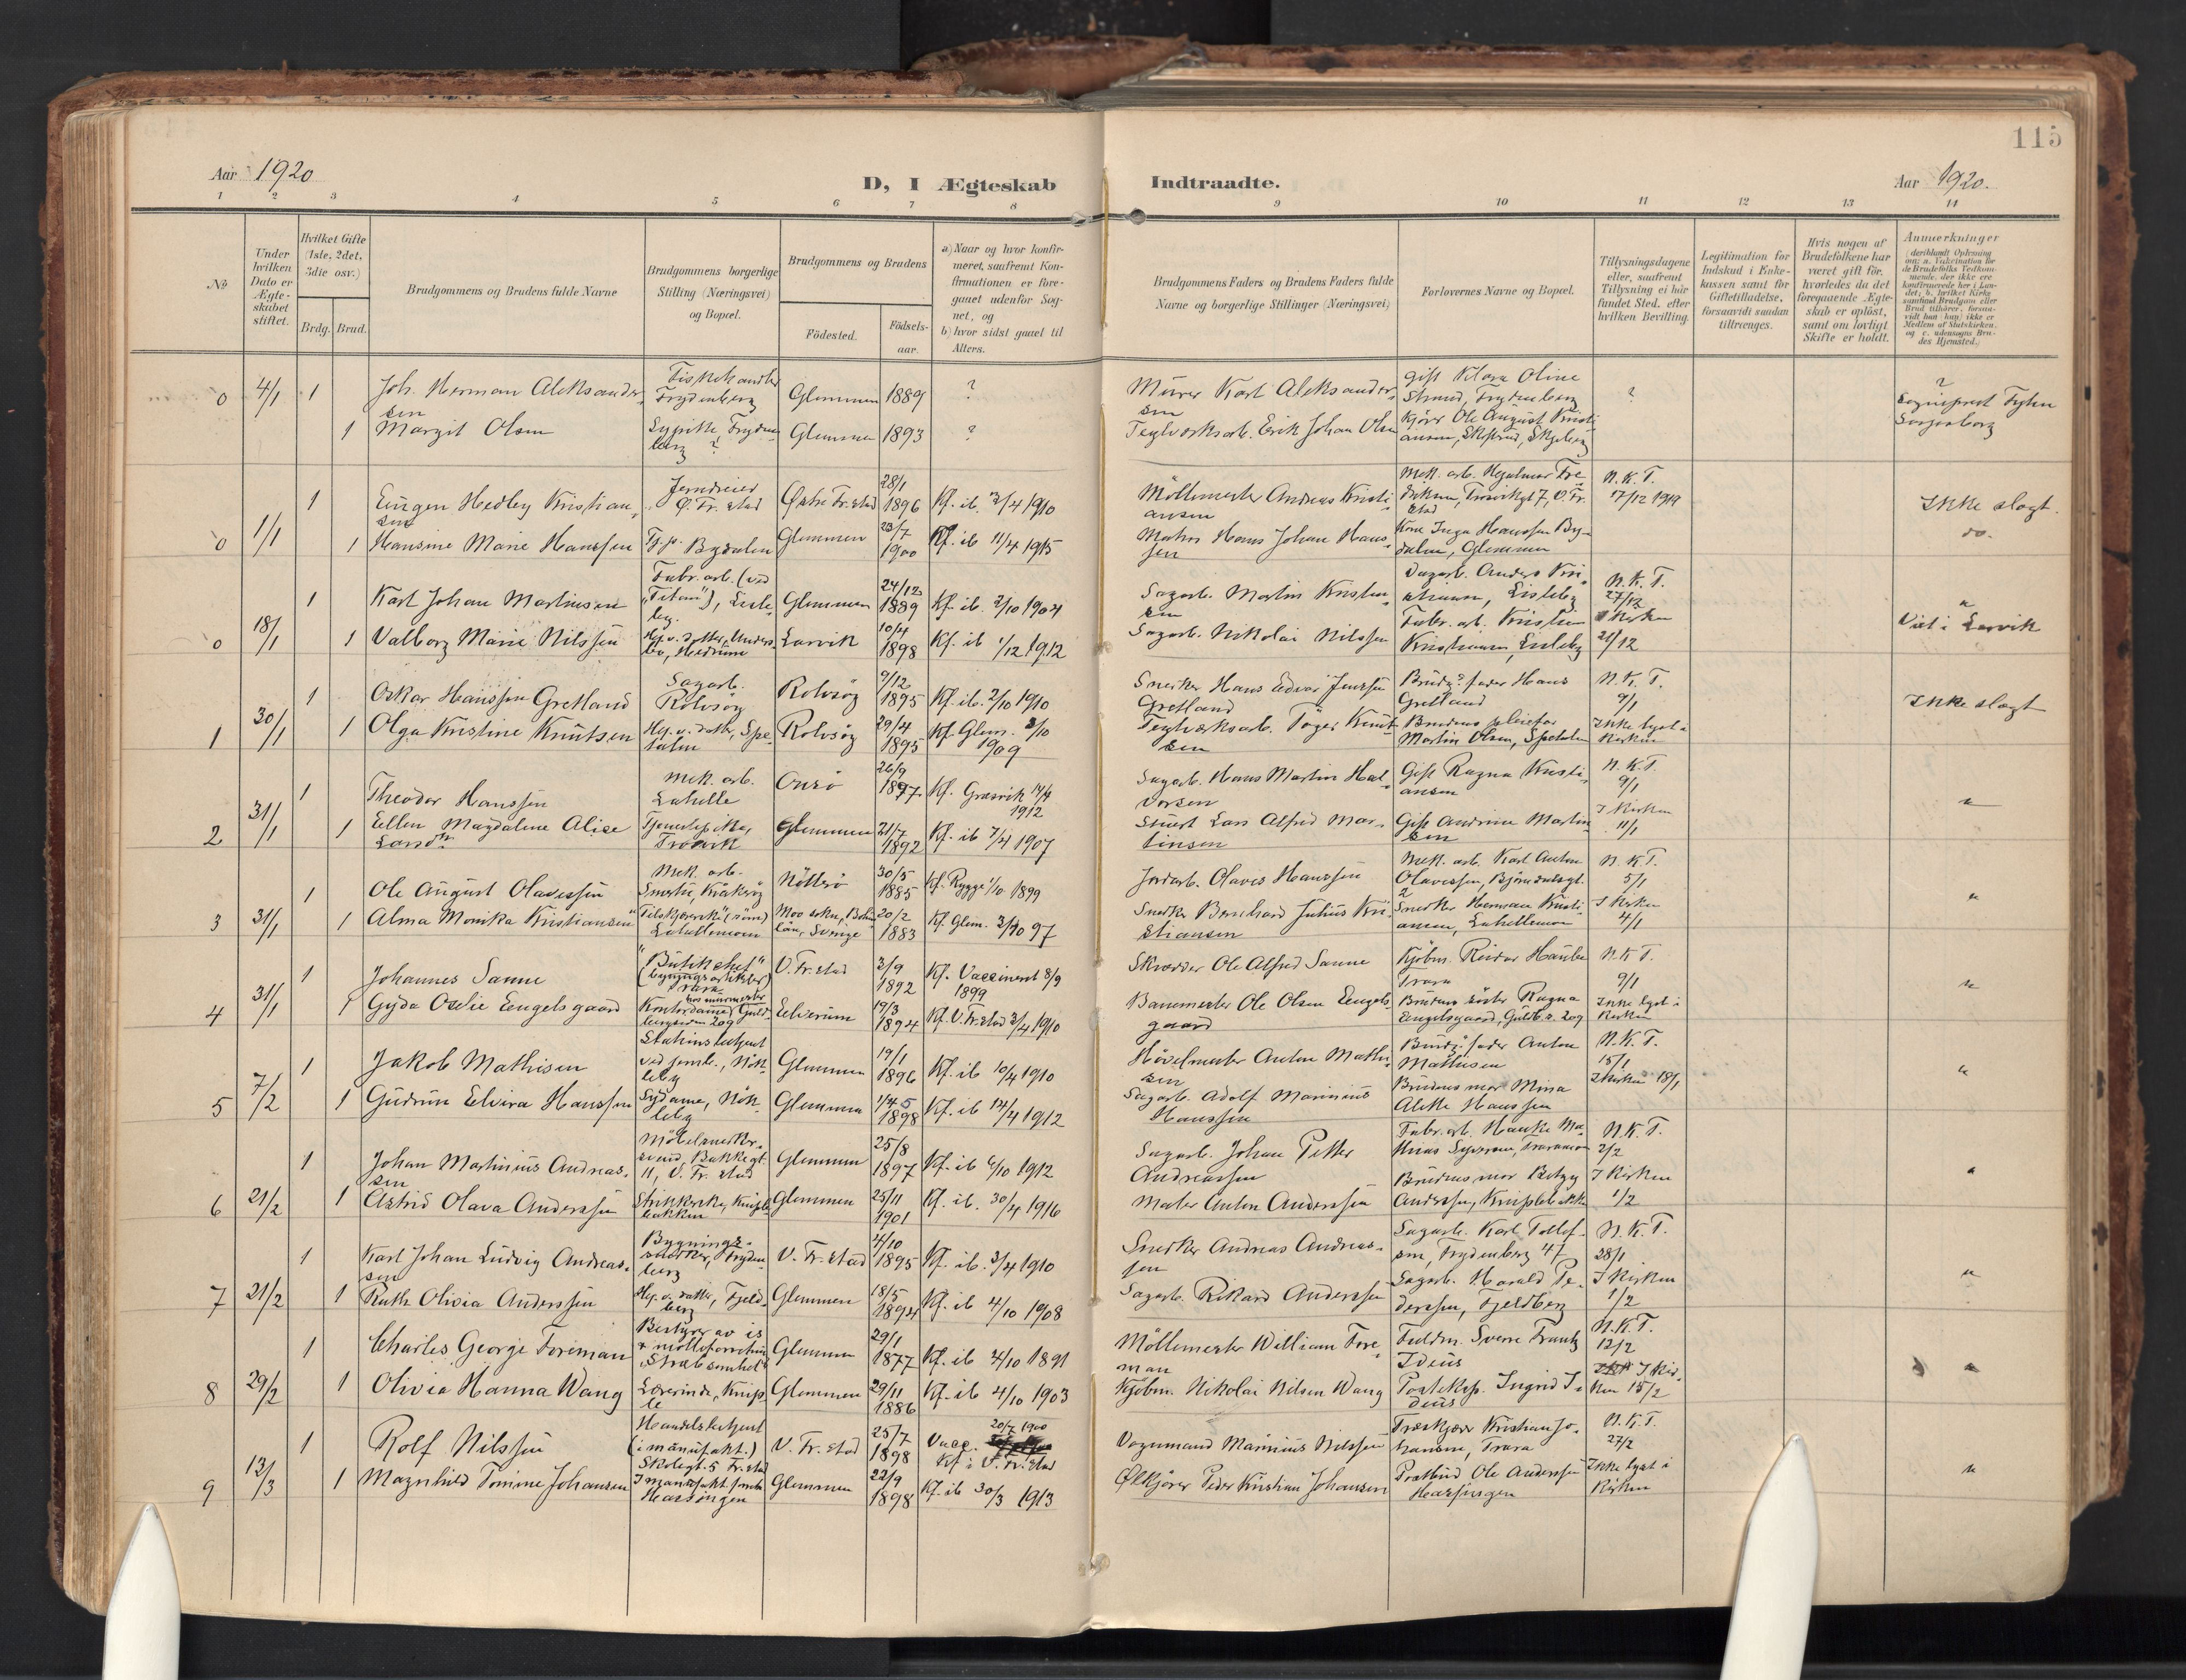 115
Aar 1920
D, I Ægteskab
Indtraadte.
Aar 1920.
1 2 3 4 5 6 7 8
9 10 11 12 13 14
№
Under hvilken Dato er Ægteskabet stiftet.
Hvilket Gifte (1ste, 2det, 3die osv.)
Brdg. Brud.
Brudgommens og Brudens fulde Navne
Brudgommens borgerlige Stilling (Næringsvei) og Bopæl.
Brudgommens og Brudens
Födested.
Födsels-aar.
a) Naar og hvor konfirmeret, saafremt Konfirmationen er foregaaet udenfor Sognet, og
b) hvor sidst gaaet til Alters.
Brudgommens Faders og Brudens Faders fulde Navne og borgerlige Stillinger (Næringsvei)
Forlovernes Navne og Bopæl.
Tillysningsdagene eller, saafremt Tillysning ei har fundet Sted, efter hvilken Bevilling.
Legitimation for Indskud i Enkekassen samt for Giftetilladelse, forsaavidt saadan tiltrænges.
Hvis nogen af Brudefolkene har været gift för, hvorledes da det foregaaende Ægteskab er oplöst, samt om lovligt Skifte er holdt.
Anmerkninger
0 4/1 1 Joh. Herman Aleksandersen Fiskehandler Frydenberg Glemmen 1889 ?
Murer Karl Aleksandersen gift Klara Oline Strand, Frydenberg ? ?
1 Margit Olsen Sypike Frydenberg ? Glemmen 1893 ?
Teglverksarb. Erik Johan Olsen Kjörer Ole August Kristiansen, Skjeberg
Sogneprest
Sarpsborg
0 1/1 1 Eugen Hedley Kristiansen Jerndreier Ø. Fr.stad Østre Fr.stad 28/1 1896 Kf. ib. 3/4 1910
Möllemester Andreas Kristiansen Mek. arb. Hjalmar Fredriksen, N.K.T. 17/12 1919 Ikke slegt.
1 Hansine Marie Hanssen Bydalen Glemmen 23/7 1900 Kf. ib 11/4 1915
Matros Hans Johan Hanssen Kone Inga Hanssen Bydalen, Glemmen do.
0 18/1 1 Karl Johan Martinsen Fabr. arb. (ved "Titan"), Lisleby. Glemmen 24/12 1889 Kf. ib. 2/10 1904
Sagarb. Martin Kristensen Dagarb. Anders Kristiansen, Lisleby N.K.T. 27/12
1 Valborg Marie Nilssen Hj.v. datter, Hedrum Larvik 10/4 1898 Kf. ib 1/12 1912
Sagarb. Nikolai Nilssen Fabr. arb. Kristen Kristiansen, Lisleby I Kirken 21/12 Viet i Larvik
1 30/1 1 Oskar Hanssen Gretland Sagarb. Rolvsöy Rolvsöy 9/12 1895 Kf. ib. 2/10 1910
Snekker Hans Edvar Jenssen Gretland Brudg.s fader Hans Gretland N.K.T. 9/1 Ikke slegt
1 Olga Kristine Knutsen Hj. v. datter, Spetalen Rolvsöy 29/4 1895 Kf. Glem. 3/10 1909
Teglverksarb. Töger Knutsen Brudens pleiefar Martin Olsen, Spetalen Ikke lyst i Kirken
2 31/1 1 Theodor Hanssen Mek. arb. Labelle Onsö 26/9 1897 Kf. Græsvik 14/4 1912
Sagarb. Hans Martin Halvorsen Gift Ragna Kristiansen N.K.T. 9/1 "
1 Ellen Magdalene Alise Larsen Tjenestepike, Trosvik Glemmen 21/7 1892 Kf. ib 7/4 1907
Stuert Lars Alfred Martinsen Gift Andrine Martinsen I Kirken 11/1
3 31/1 1 Ole August Olavessen Mek. arb. Smertu, Kråkeröy Nötterö 30/5 1885 Kf. Rygge 1/10 1899
Jordarb. Olaves Hanssen Mek. arb. Karl Anton Olavessen, N.K.T. 5/1 "
1 Alma Monika Kristiansen Labellemoen Sverige 20/2 1883 Kf. Glem. 3/10 97
Snekker Bernhard Julius Kristiansen Snekker Herman Kristiansen, Labellemoen I Kirken 4/1
4 31/1 1 Johannes Sanne "Butikchef" Trara V. Fr.stad 3/9 1892 Kf. Vaccineret 8/9 1899
Skrædder Ole Alfred Sanne Kjöbm. Reidar Trara N.K.T. 9/1 "
1 Gyda Ovelie Engelsgaard Kontordame, Guldbergsveien 209 Elverum 19/3 1894 Kf. V. Fr.stad 3/4 1910
Banemester Ole Olsen Engelsgaard Brudens söster Ragna Engelsgaard, Guldb.v. 209 Ikke lyst i Kirken
5 7/2 1 Jakob Mathisen Stationsbetjent ved jernb., Nökleby Glemmen 19/1 1896 Kf. ib 10/4 1910
Hövelmester Anton Mathisen Brudg.s fader Anton Mathisen N.K.T. 15/1 "
1 Gudrun Elvira Hanssen Sydame, Nökleby Glemmen 1/5 1898 Kf. ib 14/4 1912
Sagarb. Adolf Marinius Hanssen Brudens mor Mina Alette Hanssen I Kirken 18/1
6 21/2 1 Johan Martinius Andreassen Möbelsnekkersvend, Bakkegt. 11, V. Fr.stad Glemmen 25/8 1897 Kf. ib 6/10 1912
Sagarb. Johan Petter Andreassen Fabr. arb. N.K.T. 2/2 "
1 Astrid Olava Anderssen Strikkerske, Kniplebakken Glemmen 25/11 1901 Kf. ib. 30/4 1916
Maler Anton Anderssen Brudens mor Betzy Anderssen, Kniplebakken I Kirken 1/2
7 21/2 1 Karl Johan Ludvig Andreassen Bygningssnekker, Frydenberg V. Fr.stad 4/10 1895 Kf. ib. 3/4 1910
Snekker Andreas Andreassen Sagarb. Karl Tollofsen, Frydenberg 47 N.K.T. 28/1 "
1 Ruth Olivia Anderssen Hj. v. datter, Fjeldberg Glemmen 18/5 1894 Kf. ib 4/10 1908
Sagarb. Rikard Anderssen Sagarb. Harald Pederssen, Fjeldberg I Kirken 1/2
8 29/2 1 Charles George Foreman Bestyrer av is & mölleforretning "Stræbsomhet" Glemmen 29/1 1877 Kf. ib 4/10 1891
Möllemester William Foreman Fuldm. Sverre Frantz Ideus N.K.T. 12/2 "
1 Olivia Hanna Wang Lærerinde, Kniple Glemmen 29/11 1886 Kf. ib 4/10 1903
Kjöbm. Nikolai Nilsen Wang Posteksp. Ingrid Ideus I Kirken 15/2
9 13/3 1 Rolf Nilssen Handelsbetjent (i manufakt.) Skolegt. 5 Fr.stad V. Fr.stad 25/7 1898 Vacc. 20/7 1900 Kf. i V. Fr.stad
Vognmand Marinius Nilssen Kristian Johansen, Trara N.K.T. 27/2 "
1 Magnhild Tomine Johansen I manufakt. Hassingen Glemmen 22/9 1898 Kf. ib 30/3 1913
Ölkjörer Peder Kristian Johansen Postbud Ole Anderssen Hassingen Ikke lyst i Kirken